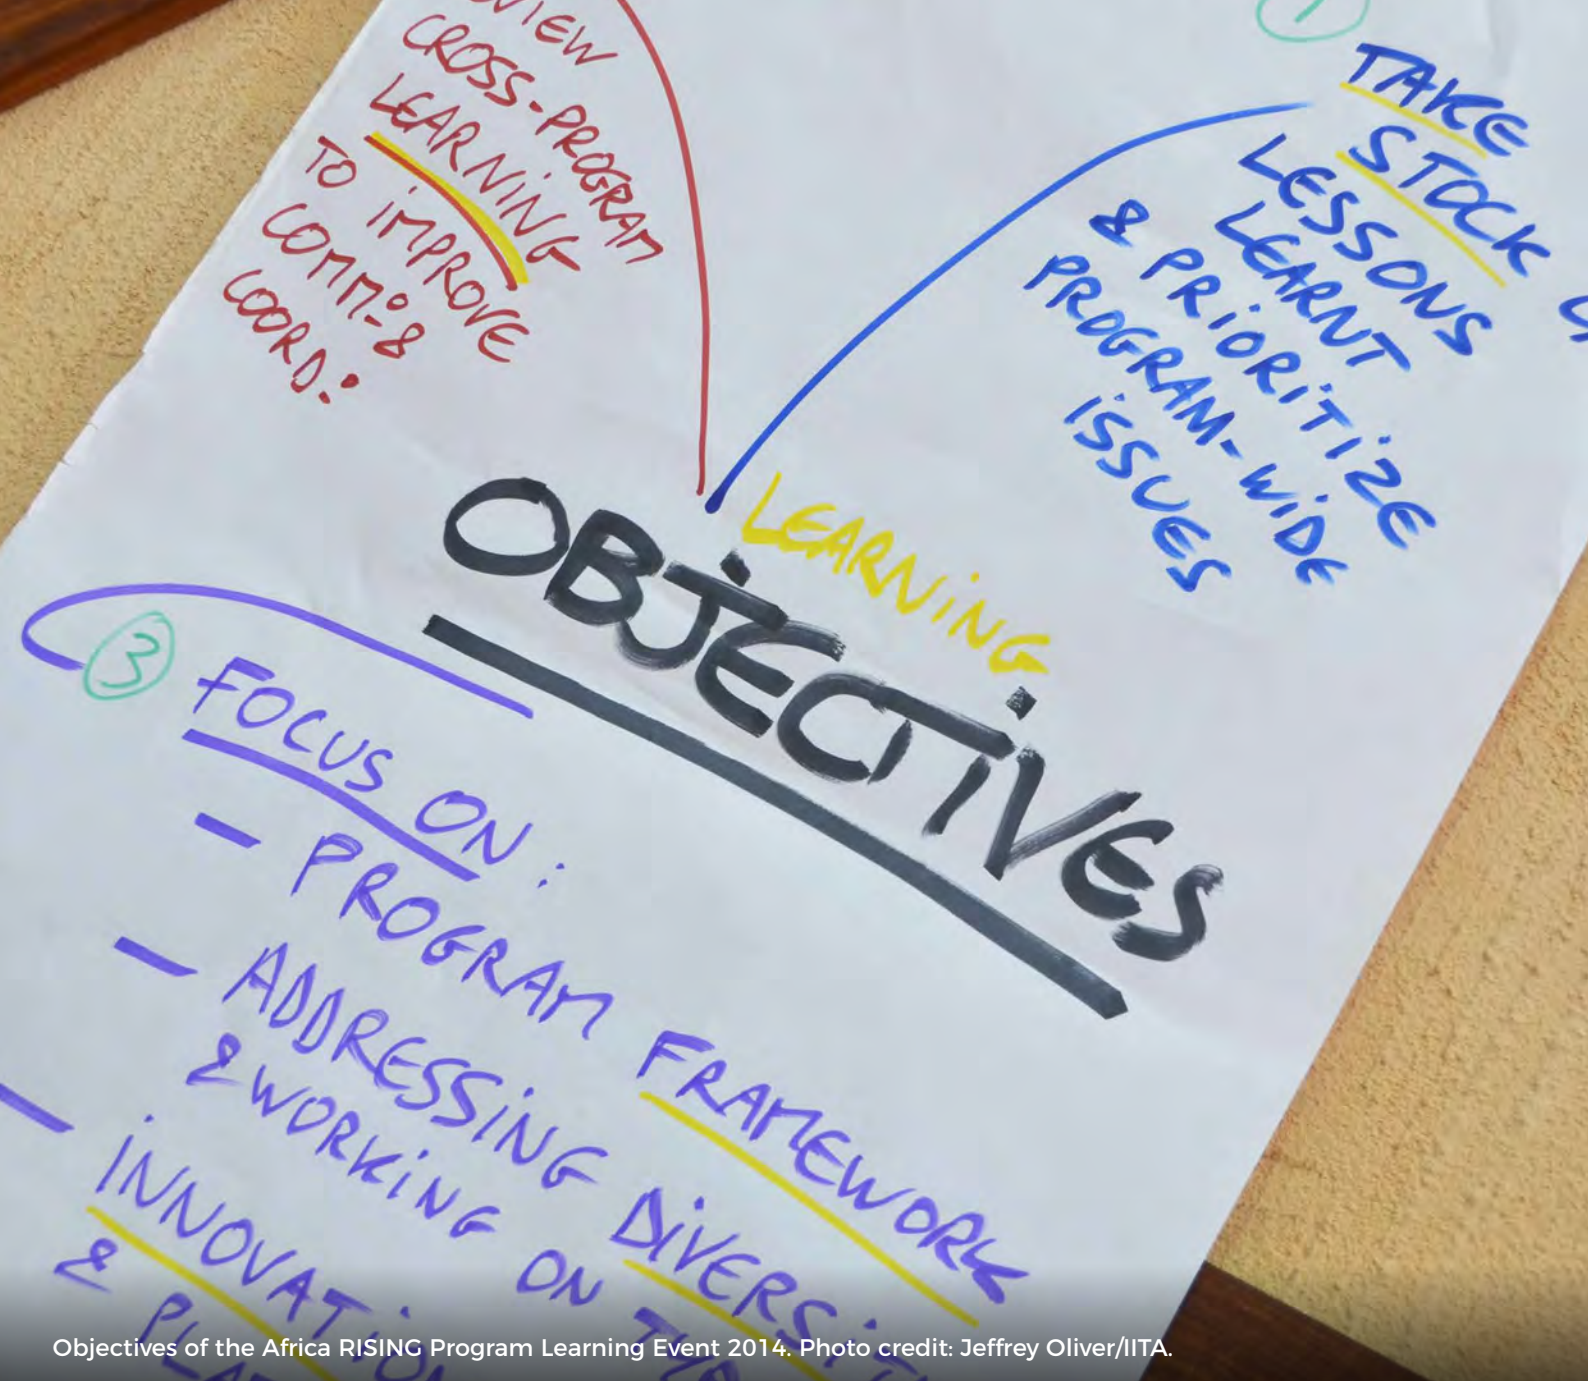 CROSS-PROGRAM
LEARNING
TO IMPROVE
COMM: &
COORD:
1
TAKE
STOCK
LESSONS
LEARNT
& PRIORITIZE
PROGRAM-WIDE
ISSUES
LEARNING
OBJECTIVES
3
FOCUS ON:
- PROGRAM FRAMEWORK
- ADDRESSING DIVERSIT
& WORKING ON
- INNOVATION
&
Objectives of the Africa RISING Program Learning Event 2014. Photo credit: Jeffrey Oliver/IITA.